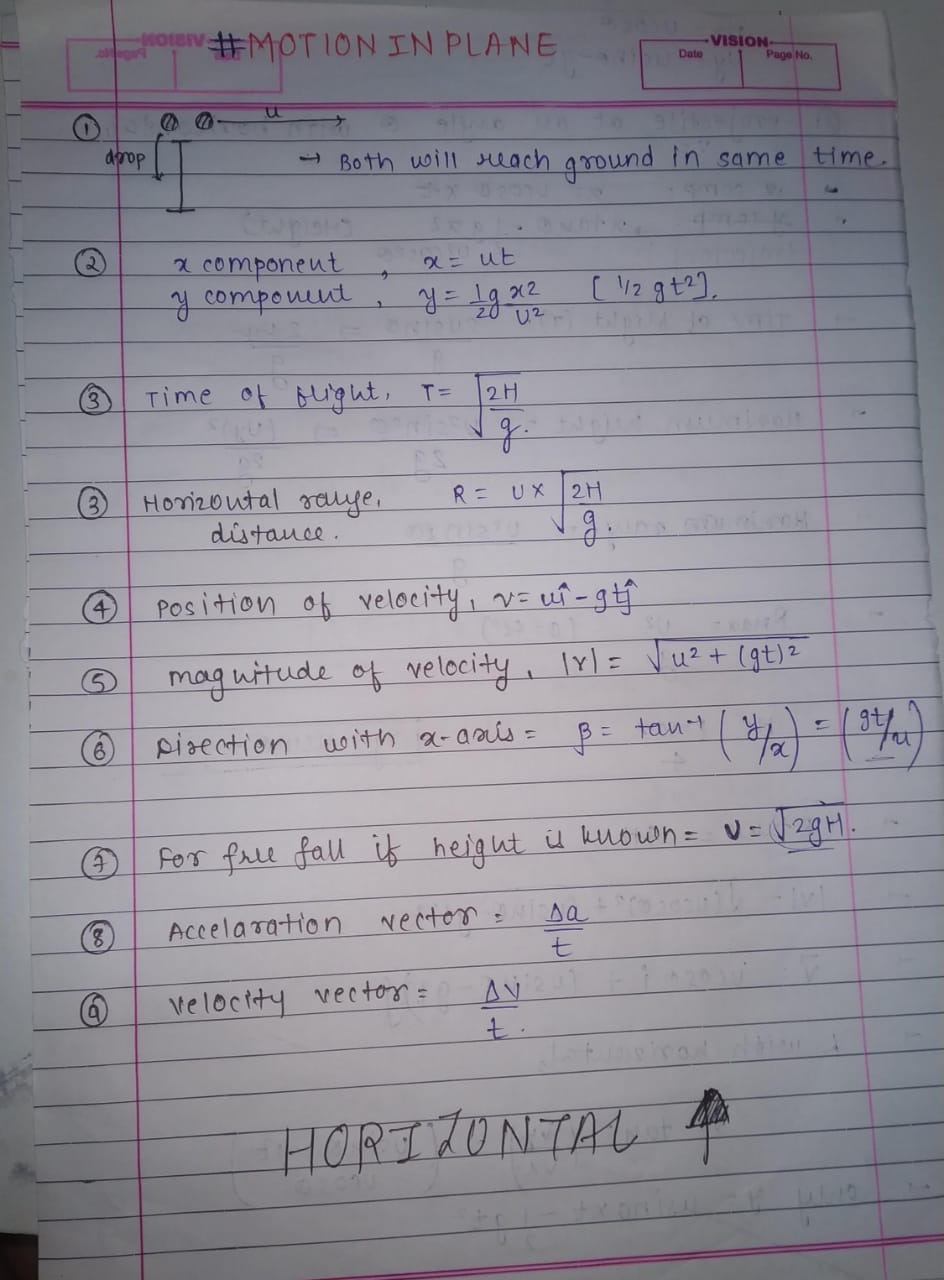 #MOTION IN PLANE
VISION
Date Page No.
① u
drop → Both will reach ground in same time.
② x component , x = ut
y component , y = 1/2 g x2/U2 [1/2 gt2].
③ Time of flight, T = √2H/g.
③ Horizontal range, R = U× √2H/g.
distance.
④ Position of velocity, v = uî - gtĵ
⑤ magnitude of velocity, |v| = √u2 + (gt)2
⑥ Direction with x-axis = β = tan-1 (y/x) = (gt/u)
⑦ For free fall if height is known = v = √2gH.
⑧ Accelaration vector = Δa/t
⑨ velocity vector = Δv/t.
HORIZONTAL ↑